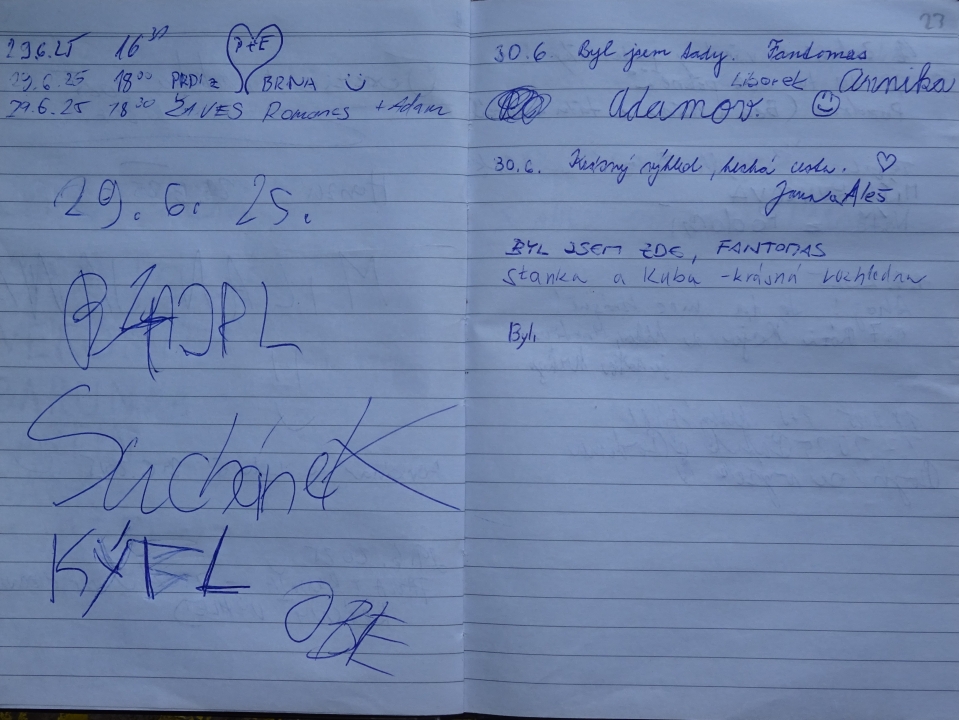 29.6.25 16³⁰ P+E
29.6.25 18⁰⁰ PRDI z BRNA
29.6.25 18³⁰ Romanes + Adam
29. 6. 25.
Suchánek
KÝBL
23
30.6. Byl jsem tady. Fantomas
Liborek Annika
Adamov.
30.6. Krásný výhled, hezká cesta.
Jana Aleš
BYL JSEM ZDE, FANTOMAS
Stanka a Kuba - krásná rozhledna
Byli